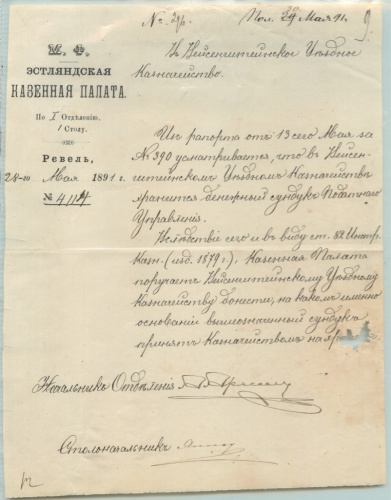 № 296.
Пол. 30 Мая 91.
9
М. Ф.
ЭСТЛЯНДСКАЯ
КАЗЕННАЯ ПАЛАТА.
По I Отдѣленію,
1 Столу.
Ревель,
28-го Мая 1891 г.
№ 4114
Въ Вейсенштейнское Уѣздное
Казначейство.
Изъ рапорта отъ 13 сего Мая за
№ 390 усматривается, что въ Вейсен-
штейнскомъ Уѣздномъ Казначействѣ
хранится денежный сундукъ Податного
Управленія.
Вслѣдствіе сего и въ виду ст. 82 Инстр.
Казн. (изд. 1879 г.). Казенная Палата
поручаетъ Вейсенштейнскому Уѣздному
Казначейству донести, на какомъ именно
основаніи вышеозначенный сундукъ
принятъ Казначействомъ на
Начальникъ Отдѣленія
Столоначальникъ